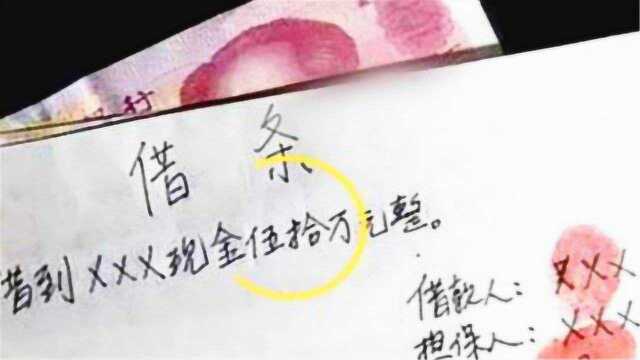 借条
借到XXX现金伍拾万元整。
借款人：XXX
担保人：XXX